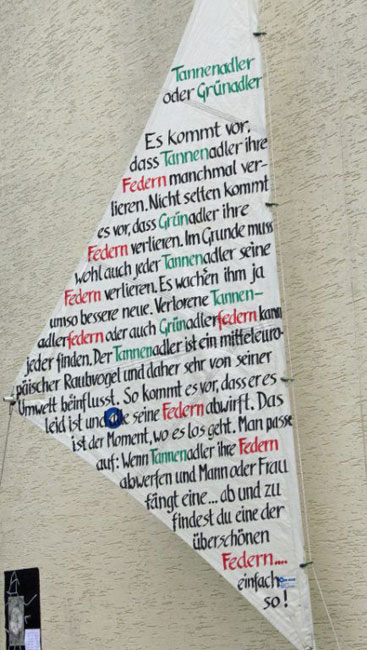 Tannenadler
oder Grünadler
Es kommt vor,
dass Tannenadler ihre
Federn manchmal ver-
lieren. Nicht selten kommt
es vor, dass Grünadler ihre
Federn verlieren. Im Grunde muss
wohl auch jeder Tannenadler seine
Federn verlieren. Es wachen ihm ja
umso bessere neue. Verlorene Tannen-
adlerfedern oder auch Grünadlerfedern kann
jeder finden. Der Tannenadler ist ein mitteleuro-
päischer Raubvogel und daher sehr von seiner
Umwelt beinflusst. So kommt es vor, dass er es
leid ist und alle seine Federn abwirft. Das
ist der Moment, wo es los geht. Man passe
auf: Wenn Tannenadler ihre Federn
abwerfen und Mann oder Frau
fängt eine... ab und zu
findest du eine der
überschönen
Federn....
einfach
so!